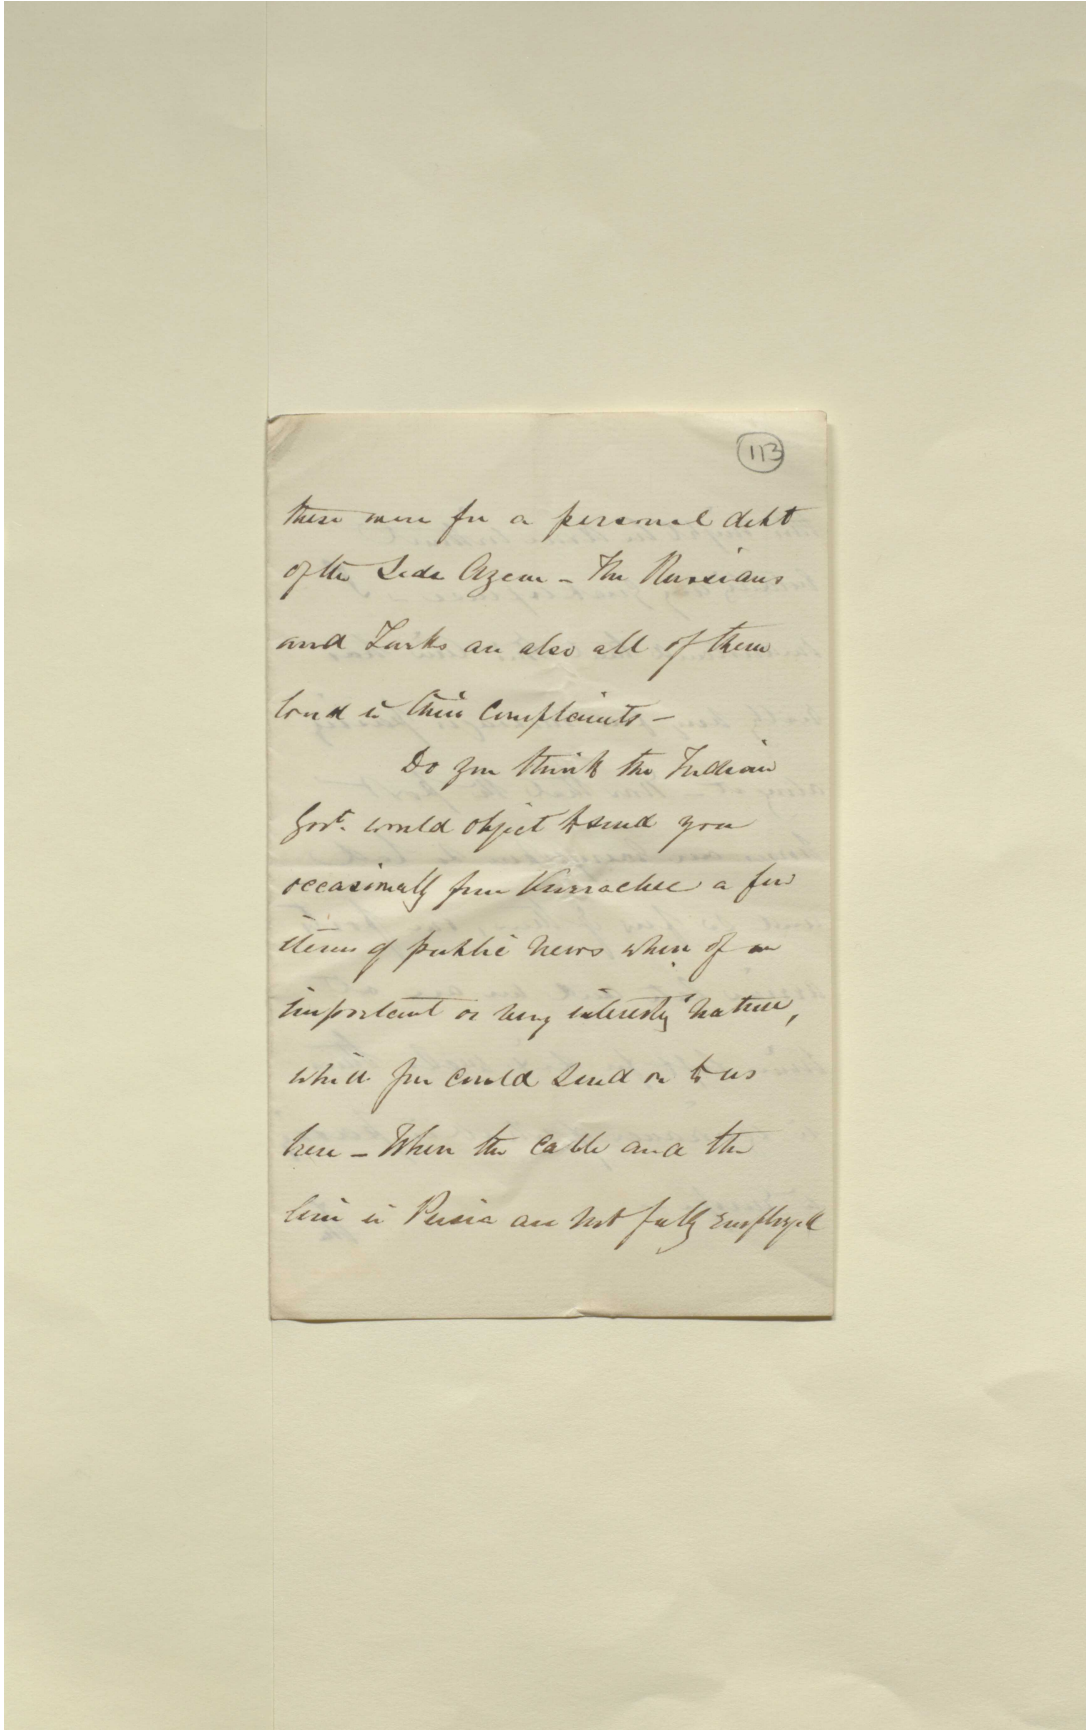 113
these men for a personal debt
of the Sedr Azem - The Russians
and Turks are also all of them
loud in their complaints -
Do you think the Indian
Govt. would object to send you
occasionally from Kurrachee a few
items of public news when of an
important or very interesting nature,
which you could send on to us
here - When the cable and the
line in Persia are not fully employed